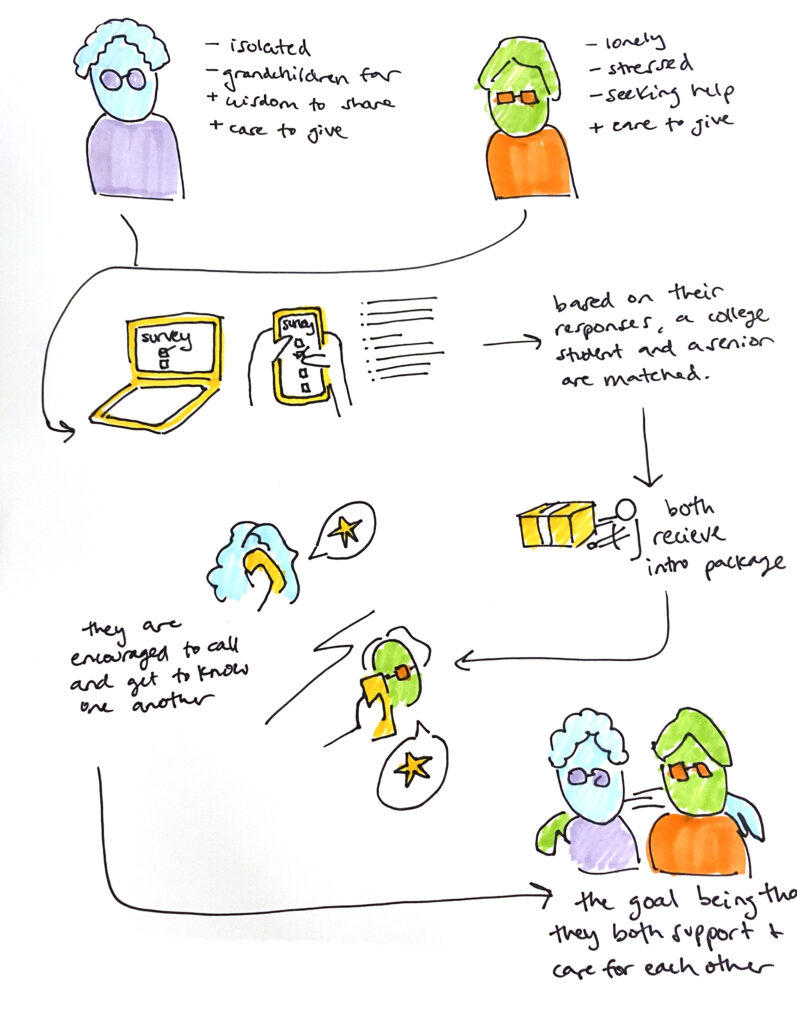 - isolated
- grandchildren far
+ wisdom to share
+ care to give
- lonely
- stressed
- seeking help
+ care to give
survey
survey
based on their
responses, a college
student and a senior
are matched.
both
recieve
intro package
they are
encouraged to call
and get to know
one another
the goal being tha
they both support +
care for each other